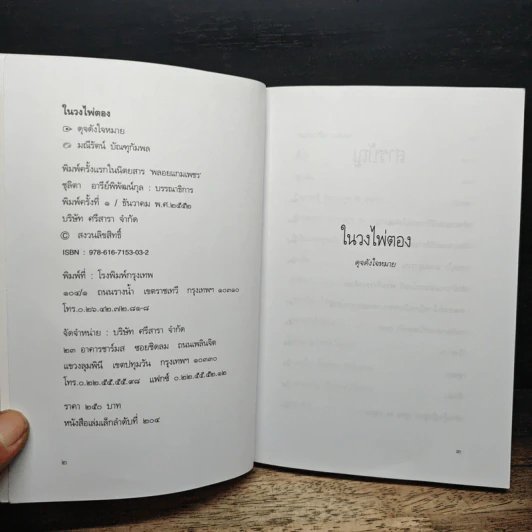 ในวงไพ่ตอง
ดุจดังใจหมาย
มณีรัตน์ บัณฑุกัมพล
พิมพ์ครั้งแรกในนิตยสาร 'พลอยแกมเพชร'
ชุลิตา อารีย์พิพัฒน์กุล : บรรณาธิการ
พิมพ์ครั้งที่ ๑ / ธันวาคม พ.ศ.๒๕๕๒
บริษัท ศรีสารา จำกัด
© สงวนลิขสิทธิ์
ISBN : 978-616-7153-03-2
พิมพ์ที่ : โรงพิมพ์กรุงเทพ
๑๐๔/๑ ถนนรางน้ำ เขตราชเทวี กรุงเทพฯ ๑๐๓๑๐
โทร.๐.๒๖.๔๒.๗๒.๘๑-๘
จัดจำหน่าย : บริษัท ศรีสารา จำกัด
๒๓ อาคารชาร์มส ซอยชิดลม ถนนเพลินจิต
แขวงลุมพินี เขตปทุมวัน กรุงเทพฯ ๑๐๓๓๐
โทร.๐.๒๒.๕๕.๕๕.๙๘ แฟกซ์ ๐.๒๒.๕๕.๕๒.๑๒
ราคา ๒๕๐ บาท
หนังสือเล่มเล็กลำดับที่ ๒๐๔
๒
ในวงไพ่ตอง
ดุจดังใจหมาย
๓